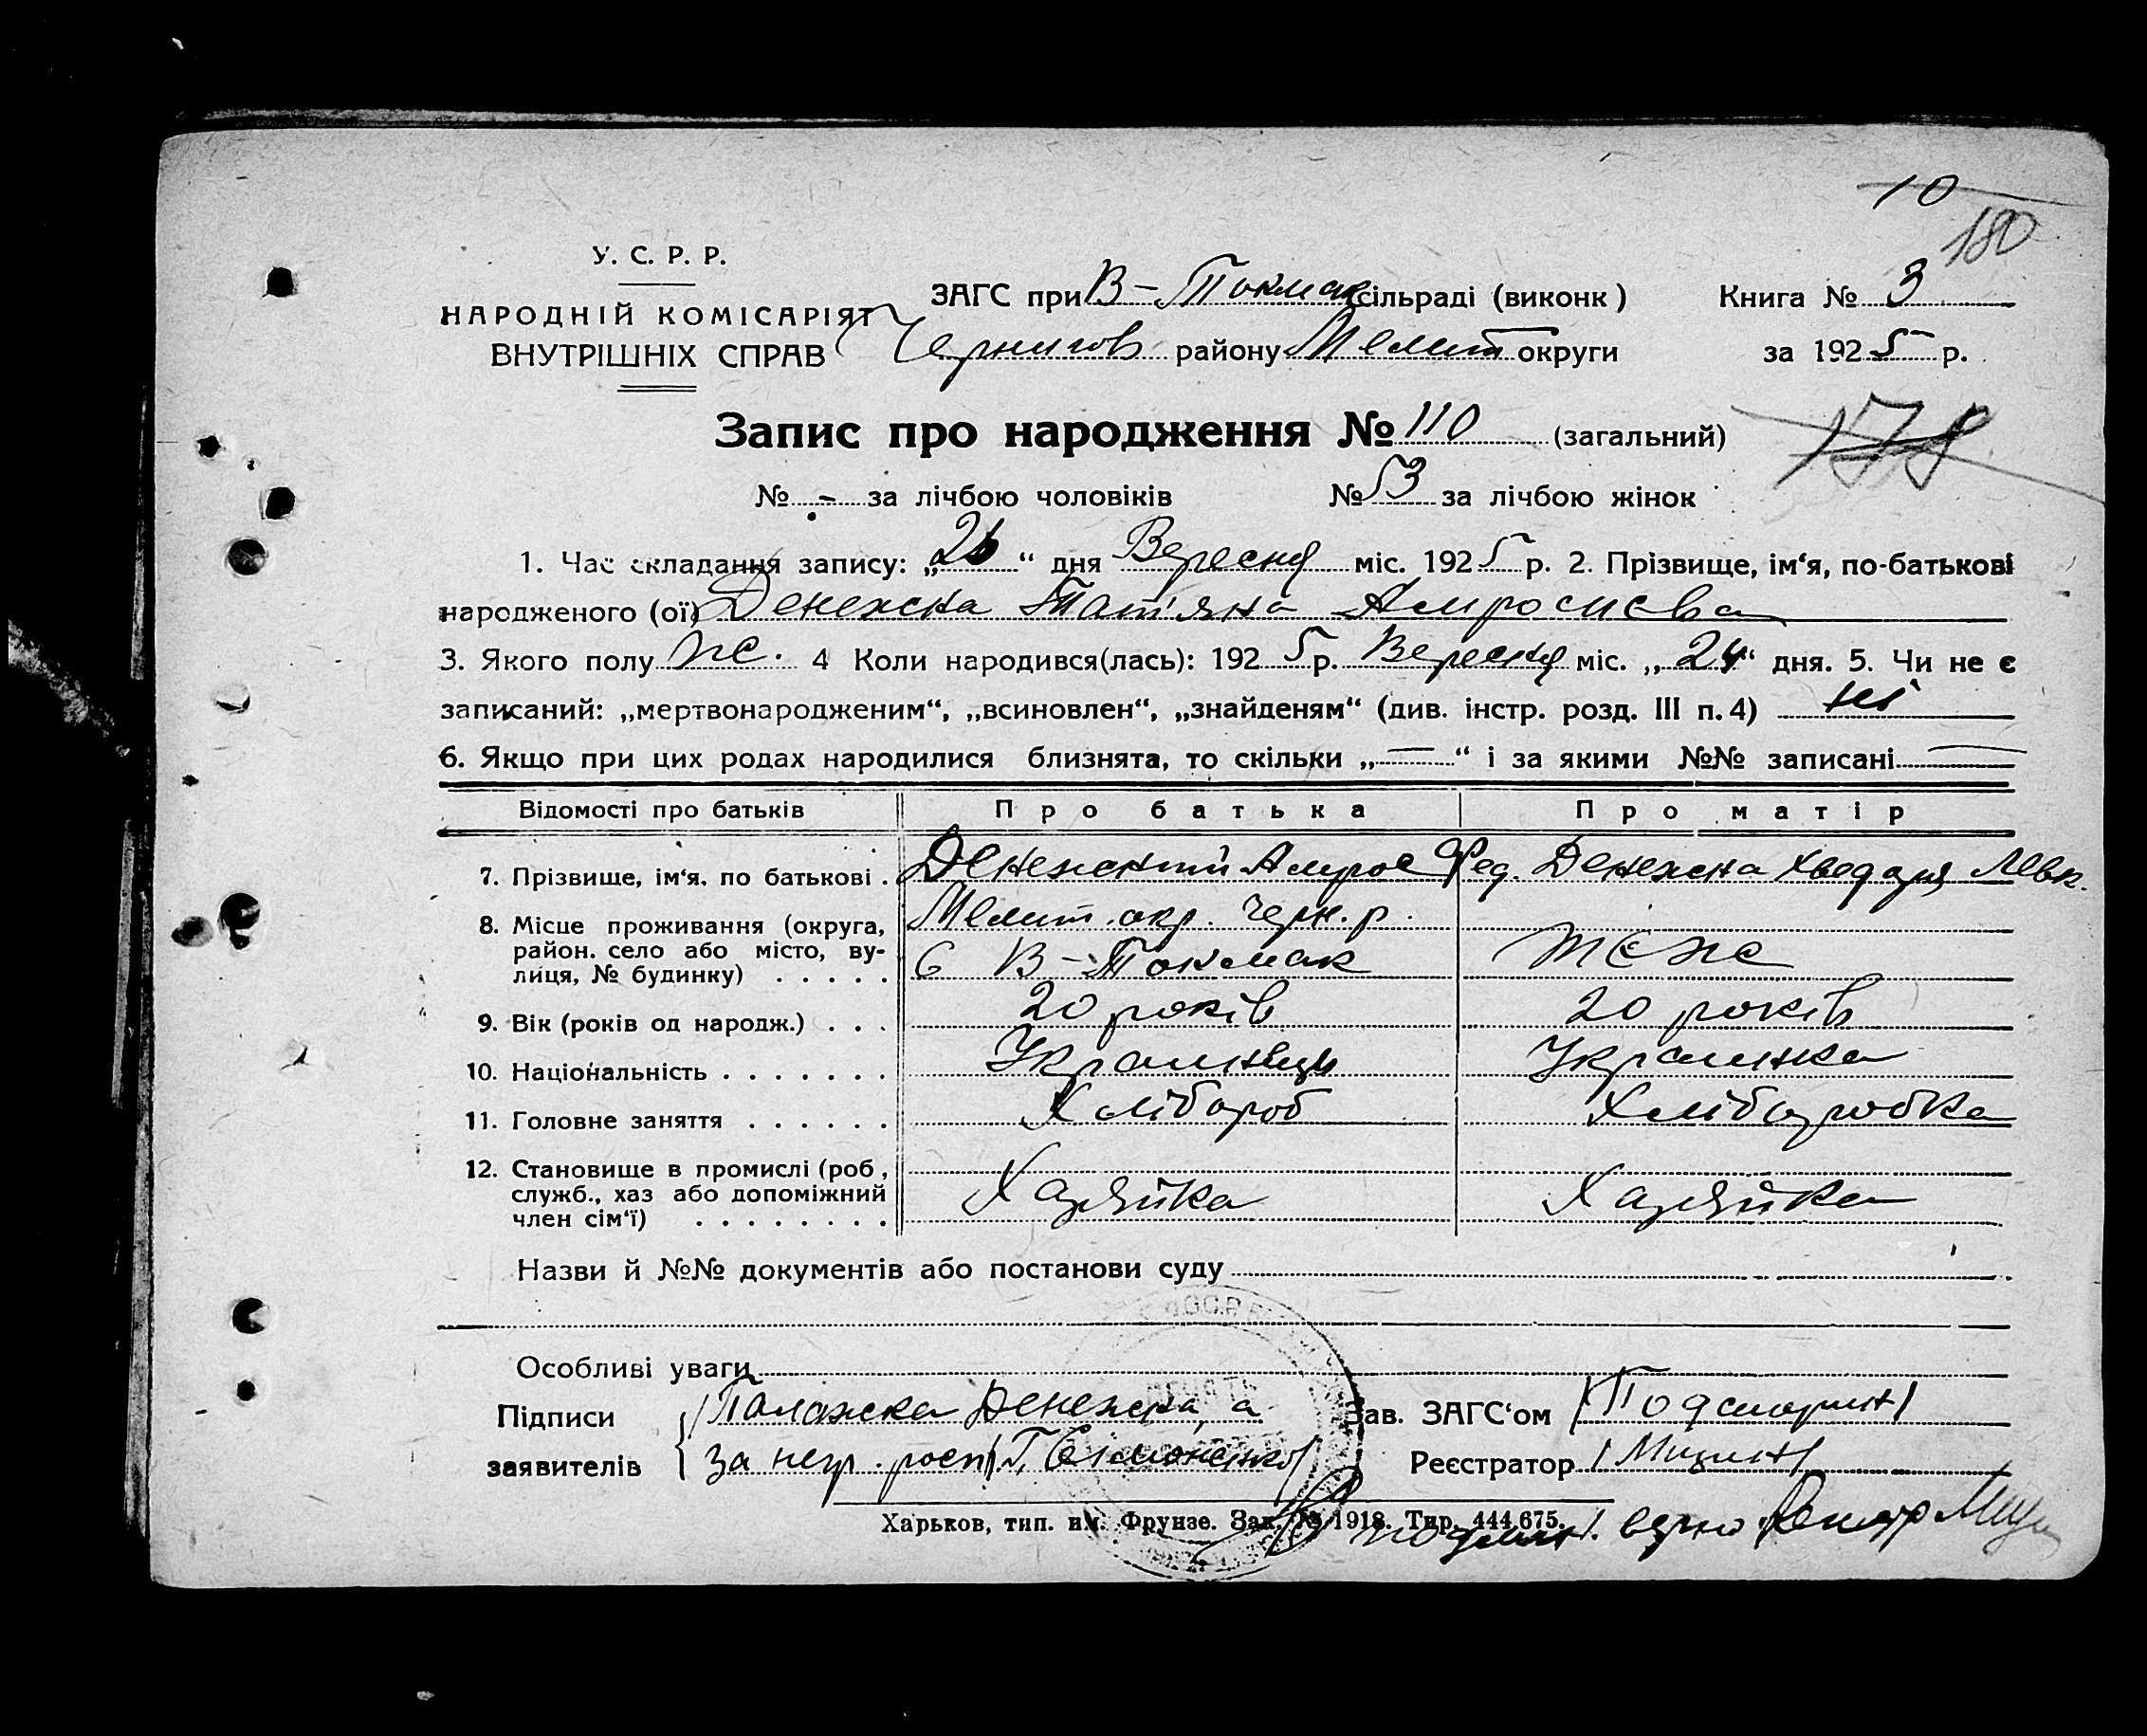 10
180
У. С. Р. Р.
НАРОДНІЙ КОМІСАРІЯТ
ВНУТРІШНІХ СПРАВ
ЗАГС при В-Токмак сільраді (виконк)
Чернигов району Мелит округи
Книга № 3
за 1925 р.
Запис про народження № 110 (загальний)
178
№ - за лічбою чоловіків № 53 за лічбою жінок
1. Час складання запису: „26“ дня Вересня міс. 1925 р. 2. Прізвище, ім‘я, по-батькові
народженого (ої) Денежка Тат'яна Амросиєва
3. Якого полу жс. 4 Коли народився(лась): 1925 р. Вересня міс. „24“ дня. 5. Чи не є
записаний: „мертвонародженим“, „всиновлен“, „знайденям“ (див. інстр. розд. III п. 4) ні
6. Якщо при цих родах народилися близнята, то скільки „—“ і за якими №№ записані —
Відомості про батьків Про батька Про матір
7. Прізвище, ім‘я, по батькові . Денежний Амрос Фед. Денежна Хведора Левк.
8. Місце проживання (округа, район, село або місто, ву-
лиця, № будинку) . . . . .
Мелит. окр. Черн. р.
с В-Токмак
9. Вік (років од народж.) . . . 20 років 20 років
10. Національність . . . . . . . Українець Украинка
11. Головне заняття . . . . . . Хлібороб Хліборобка
12. Становище в промислі (роб,
служб., хаз або допоміжний
член сім‘ї) . . . . . . . . Хазяйка Хазяйка
Назви й №№ документів або постанови суду
Особливі уваги
Підписи Палажка Денежна, а Зав. ЗАГС‘ом
заявителів за негр. росп. /Г. Сімоненко/ Реєстратор /Мицин/
Харьков, тип. им. Фрунзе. Зак. 1918. Тир. 444.675.